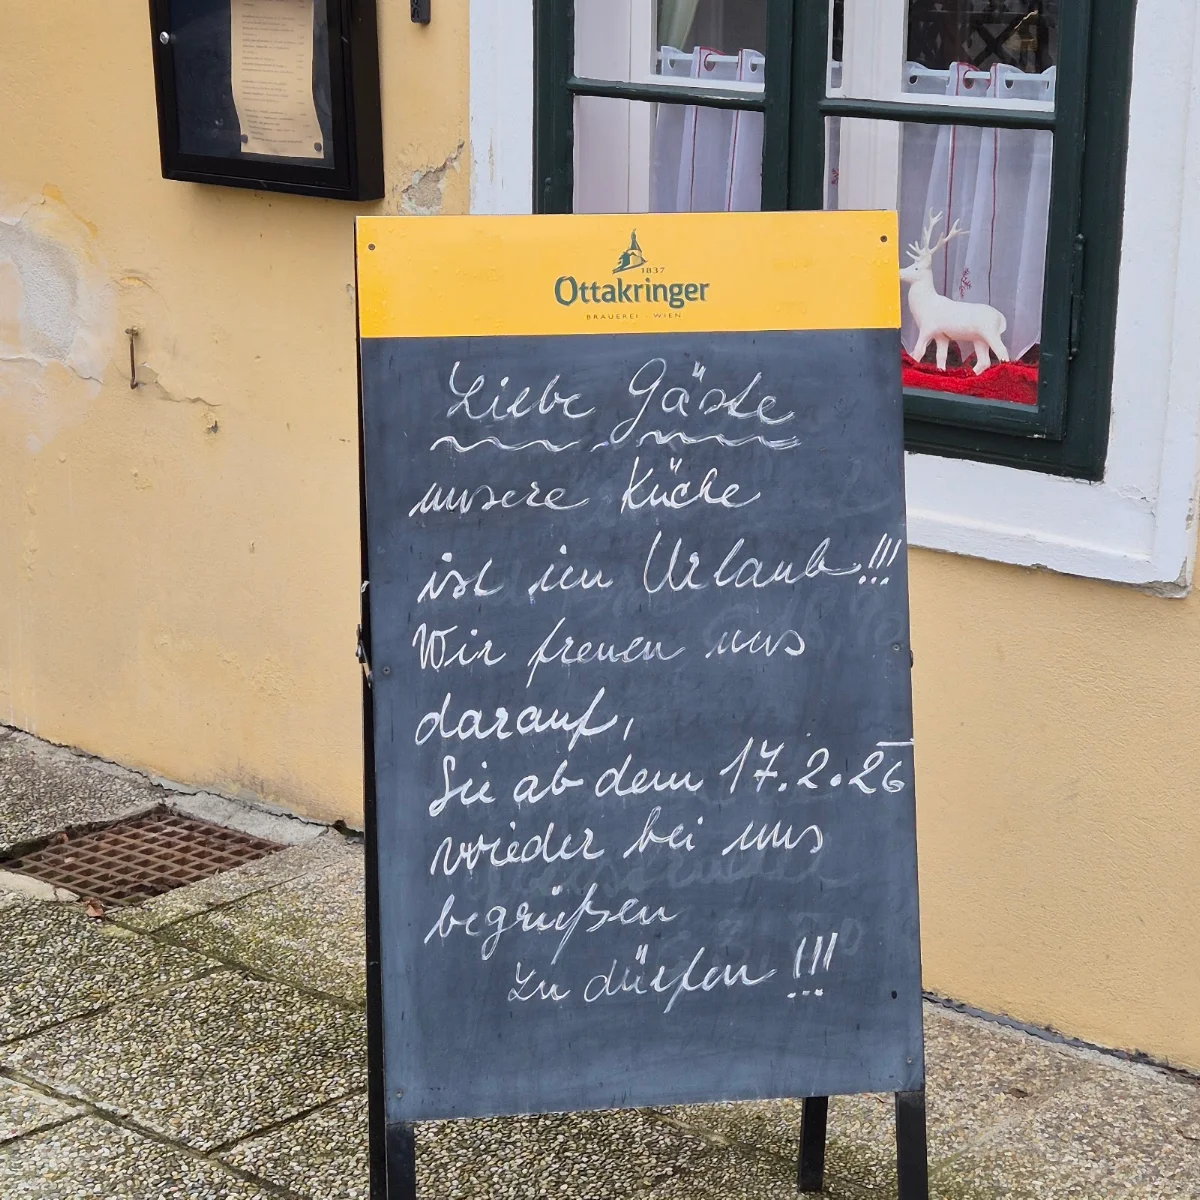 1837
Ottakringer
BRAUEREI · WIEN
Liebe Gäste
unsere Küche
ist im Urlaub!!!
Wir freuen uns
darauf,
Sie ab dem 17.2.26
wieder bei uns
begrüßen
zu dürfen !!!